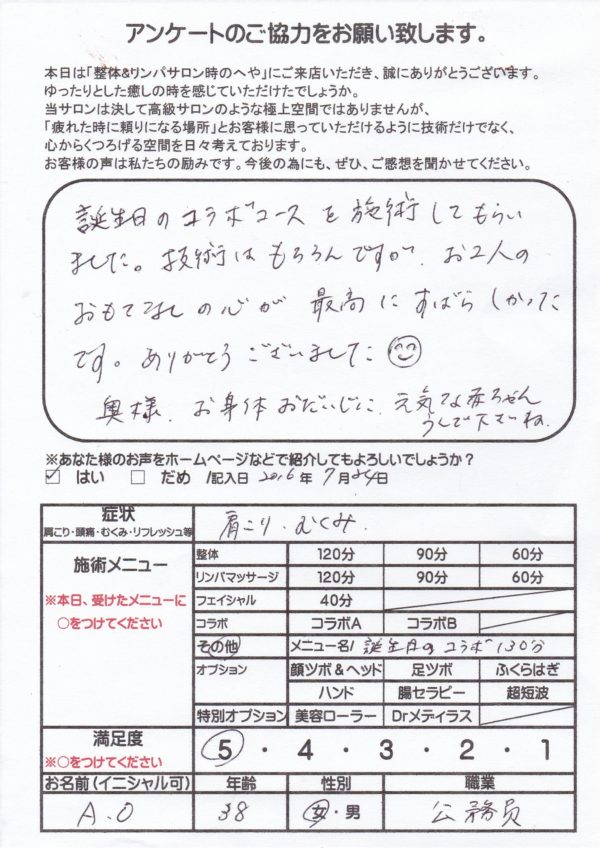 アンケートのご協力をお願い致します。
本日は「整体&リンパサロン時のへや」にご来店いただき、誠にありがとうございます。
ゆったりとした癒しの時を感じていただけたでしょうか。
当サロンは決して高級サロンのような極上空間ではありませんが、
「疲れた時に頼りになる場所」とお客様に思っていただけるように技術だけでなく、
心からくつろげる空間を日々考えております。
お客様の声は私たちの励みです。今後の為にも、ぜひ、ご感想を聞かせてください。
誕生日のコラボコースを施術してもらい
ました。技術はもちろんですが、お2人の
おもてなしの心が最高にすばらしかった
です。ありがとうございました
奥様、お身体おだいじに、元気な赤ちゃん
うんで下さいね。
※あなた様のお声をホームページなどで紹介してもよろしいでしょうか?
☑ はい □ だめ /記入日 2016年 7月24日
症状 肩こり、むくみ、
肩こり・頭痛・むくみ・リフレッシュ等
施術メニュー 整体 120分 90分 60分
リンパマッサージ 120分 90分 60分
※本日、受けたメニューに フェイシャル 40分
○をつけてください コラボ コラボA コラボB
その他 メニュー名/誕生日のコラボ130分
オプション 顔ツボ&ヘッド 足ツボ ふくらはぎ
ハンド 腸セラピー 超短波
特別オプション 美容ローラー Drメディラス
満足度 5・4・3・2・1
※○をつけてください
お名前(イニシャル可) 年齢 性別 職業
A.O 38 女・男 公務員